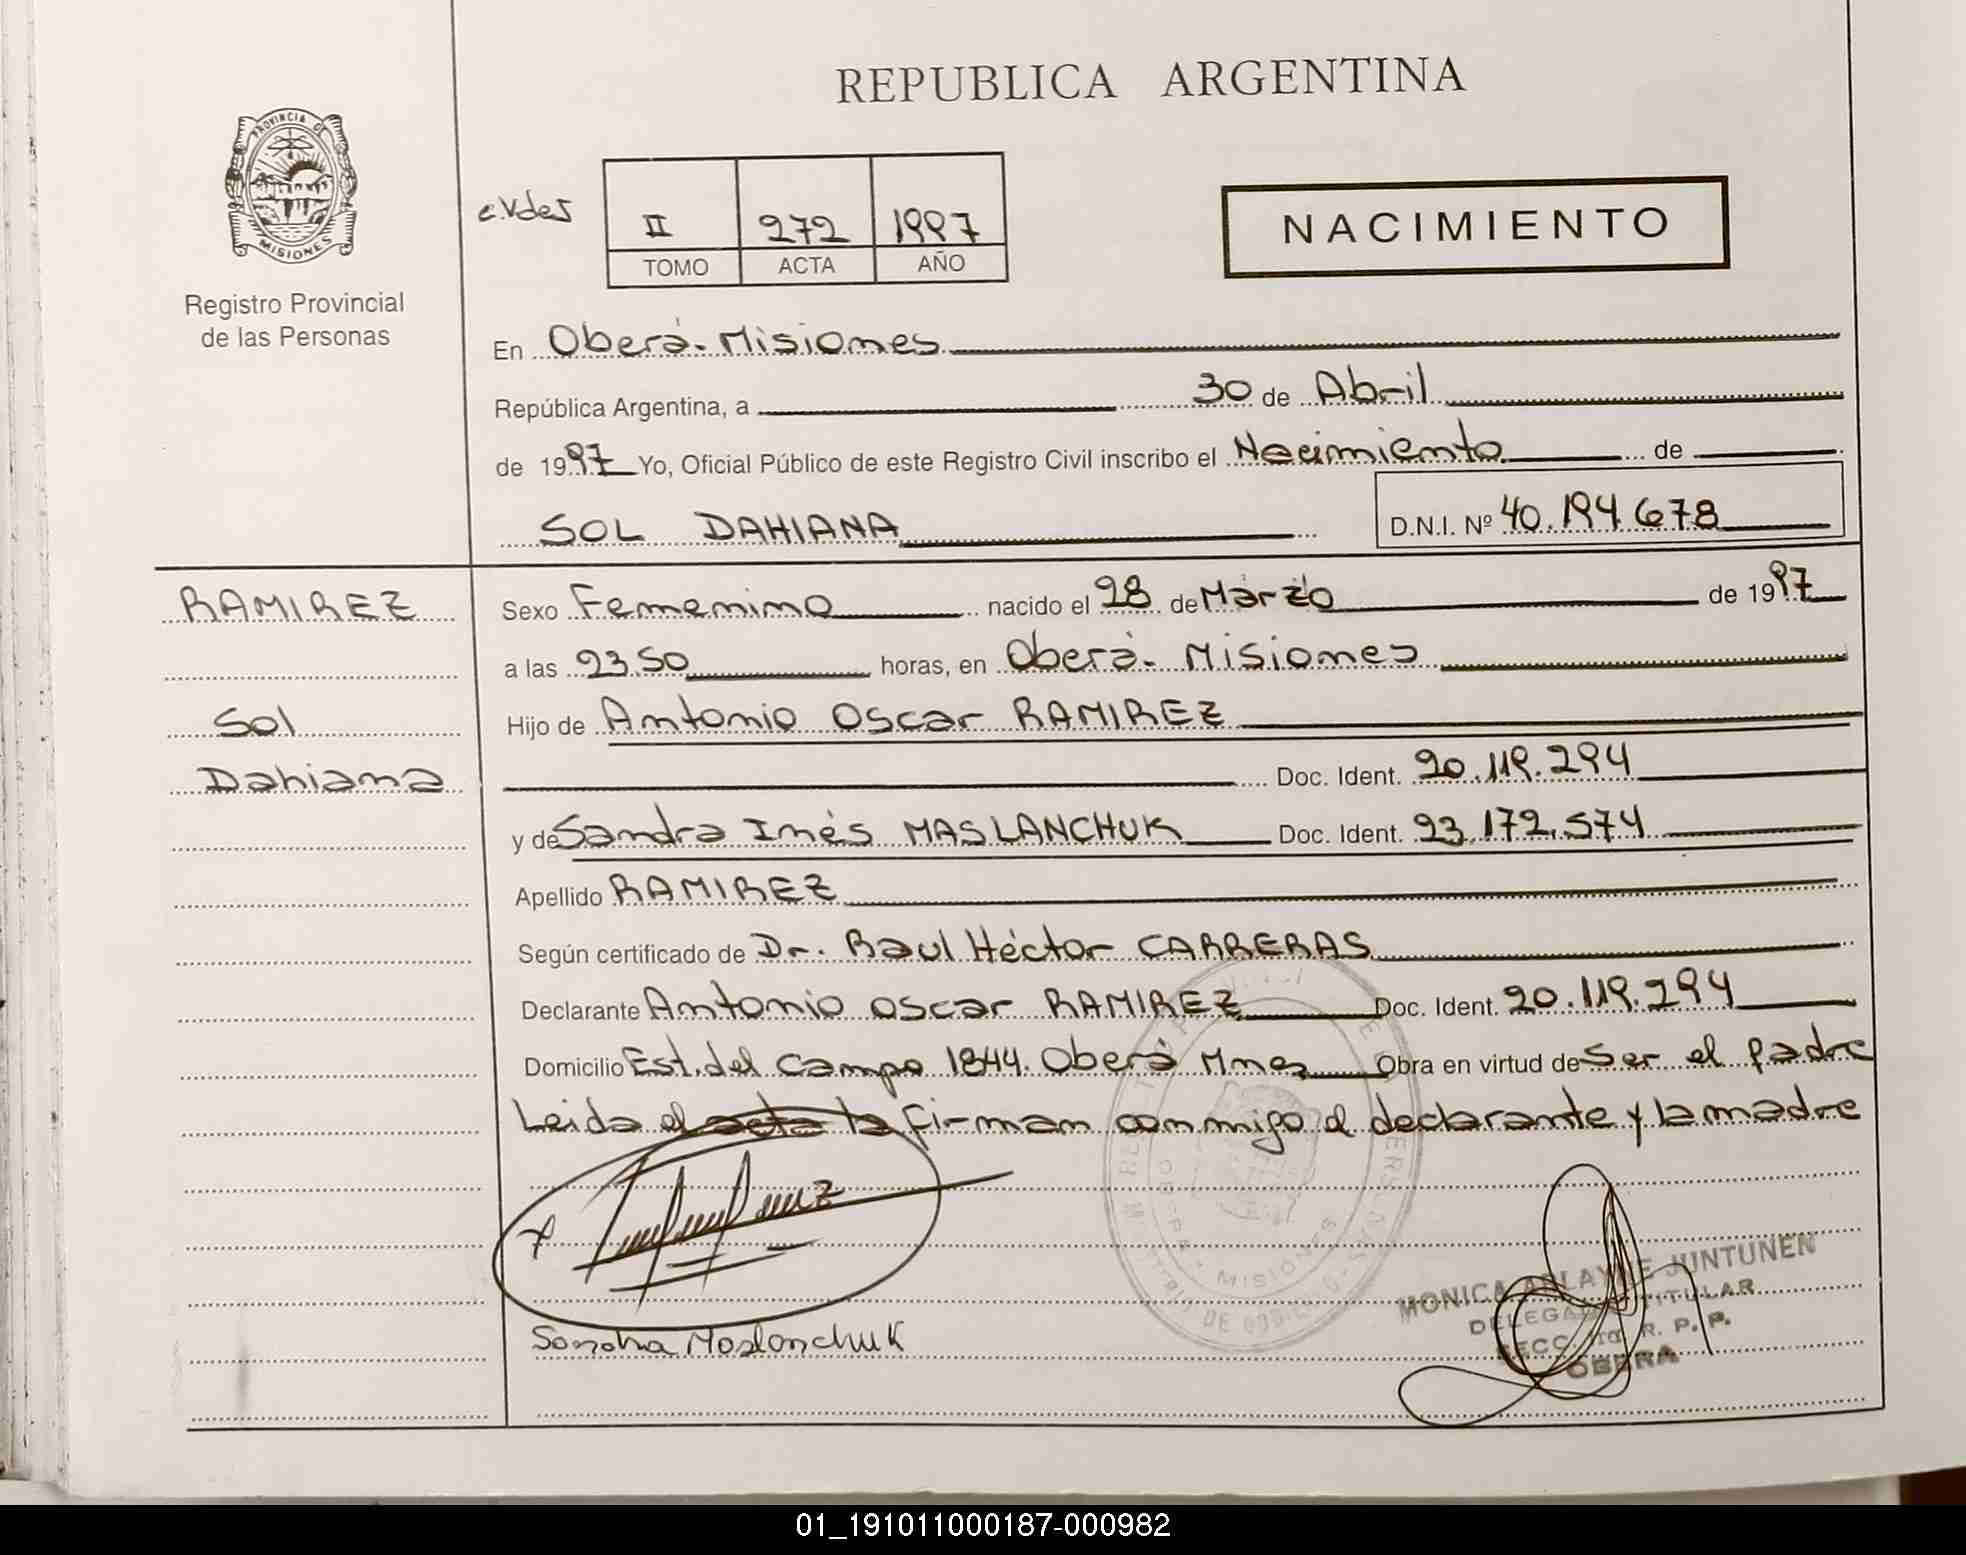 REPUBLICA ARGENTINA
PROVINCIA DE
MISIONES
Registro Provincial
de las Personas
c.Vdes
II 272 1997
TOMO ACTA AÑO
NACIMIENTO
En Oberá-Misiones
República Argentina, a 30 de Abril
de 1997 Yo, Oficial Público de este Registro Civil inscribo el Nacimiento de
SOL DAHIANA D.N.I. Nº 40.194.678
RAMIREZ
Sol
Dahiana
Sexo Femenino nacido el 28 de Marzo de 1997
a las 23.50 horas, en Oberá- Misiones
Hijo de Antonio Oscar RAMIREZ
Doc. Ident. 20.119.294
y de Sandra Inés MASLANCHUK Doc. Ident. 23.172.574
Apellido RAMIREZ
Según certificado de Dr. Raul Héctor CARRERAS
Declarante Antonio Oscar RAMIREZ Doc. Ident. 20.119.294
Domicilio Est. del Campo 1844. Oberá Mnes Obra en virtud de ser el padre
Leida el acta la firman conmigo el declarante y la madre
Sandra Maslanchuk
MONICA JUNTUNEN
TITULAR
SECC. 1ra. R. P. P.
OBERA
MISIONES
01_191011000187-000982